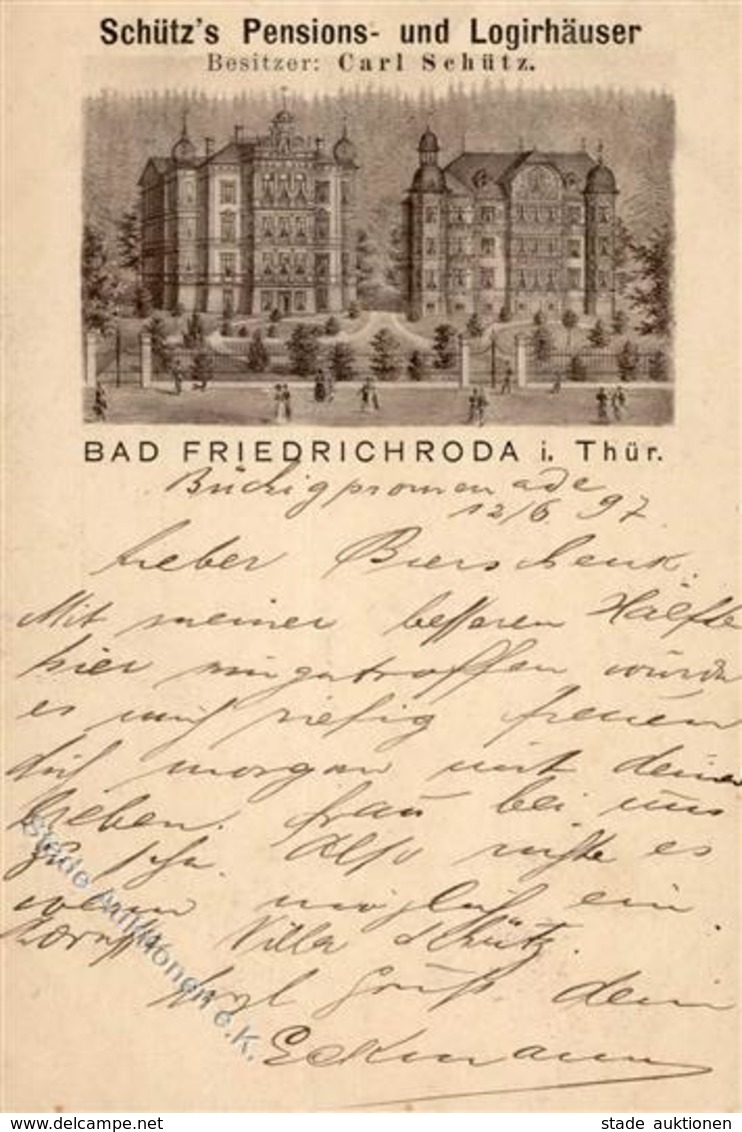 Schütz's Pensions- und Logirhäuser
Besitzer: Carl Schütz.
BAD FRIEDRICHRODA i. Thür.
Büchigpromenade
12/6. 97.
Lieber Bierschenk.
Mit meiner besseren Hälfte
hier eingetroffen würde
es mich riesig freuen
dich morgen mit deiner
lieben Frau bei uns
zu sehn. Also richte es
wenn möglich ein
Villa Schütz.
Herzl Gruß dein
Eckmann
Stade Auktionen e.K.
DELCAMPE.NET
stade auktionen